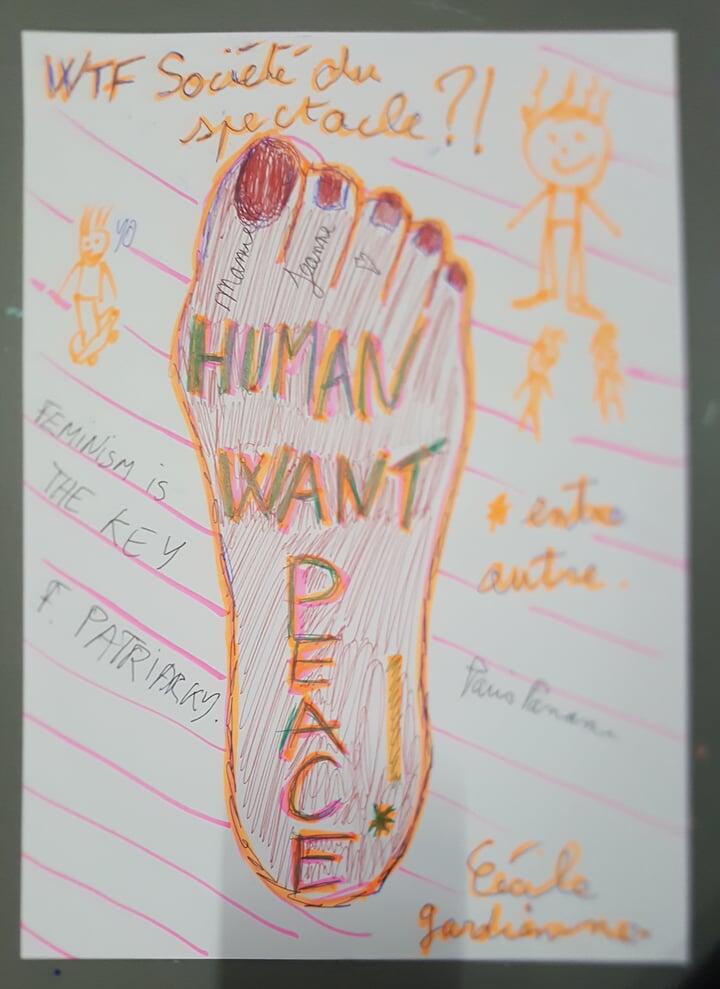 WTF Société du
spectacle ?!
YO
mamie
Jeanne
HUMAN
WANT
PEACE
! *
FEMINISM is
THE KEY
F. PATRIARKY.
* entre
autre.
Paris
Cécile
gardienne.